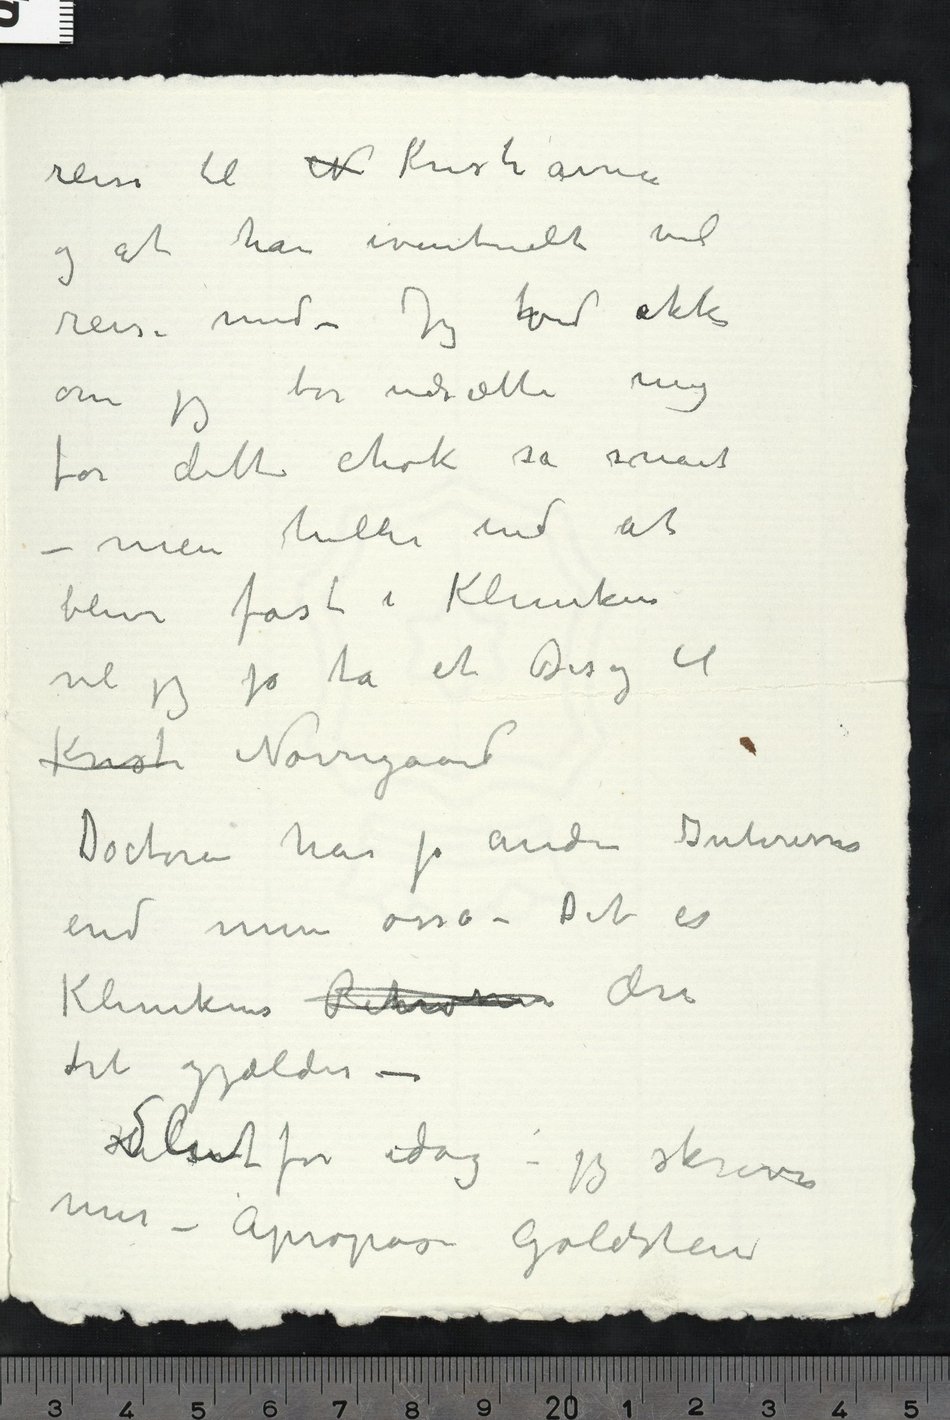 reise til N Kristiania
og at han eventuelt vil
reise med – Jeg ved ikke
om jeg bør udsætte mig
for dette chok så snart
– men heller end at
blive fast i Klinikens
vil jeg jo ta et Besøg til
Kristi Norregaard
Doctoren har jo andre Interesser
end mine osså – Det er
Klinikens Ære
det gjælder –
Slut for idag – jeg skriver
mer – Apropos Goldstein